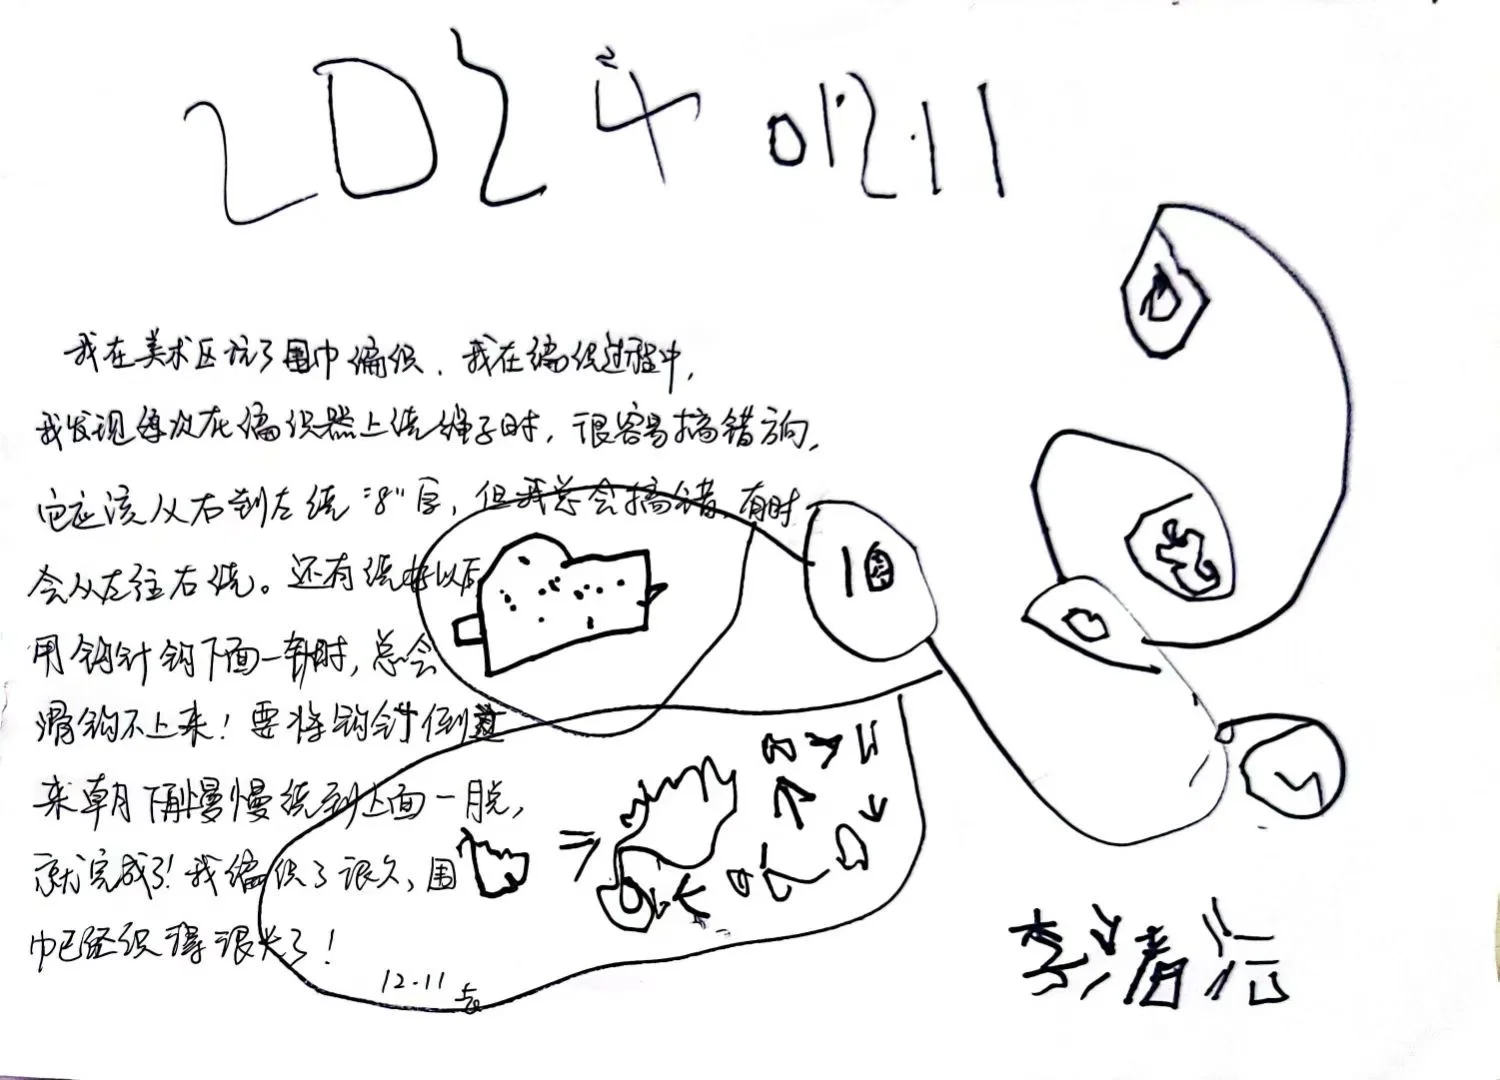 2024 012.11
我在美术区玩了围巾编织.我在编织过程中,
我发现每次在编织器上绕绳子时,很容易搞错方向,
它应该从右到左绕"8"字,但我总会搞错,有时
会从左往右绕。还有绕好以后
用钩针钩下面一针时,总会
滑钩不上来!要将钩针倒过
来朝下再慢慢绕到上面一脱,
就完成了!我编织了很久,围
巾已经织得很长了!
12.11
李清